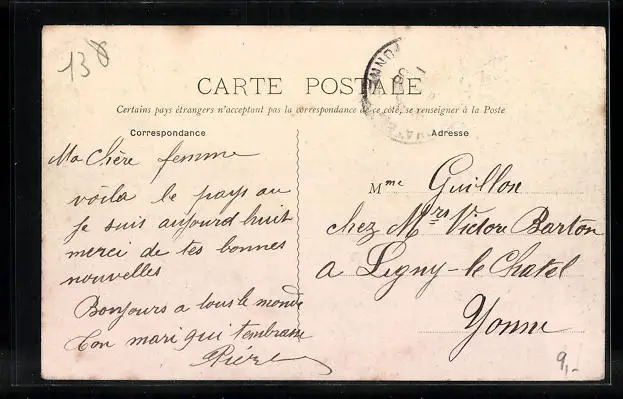 138
CARTE POSTALE
Certains pays étrangers n'acceptant pas la correspondance de ce côté, se renseigner à la Poste
Correspondance
Adresse
Ma Chère femme
voila le pays au
je suis aujourd huit
merci de tes bonnes
nouvelles
Bonjours a tous le monde
Ton mari qui t'embrasse
Mme Guillon
chez Mrs Victore Barton
a Ligny-le Chatel
Yonne
9,-